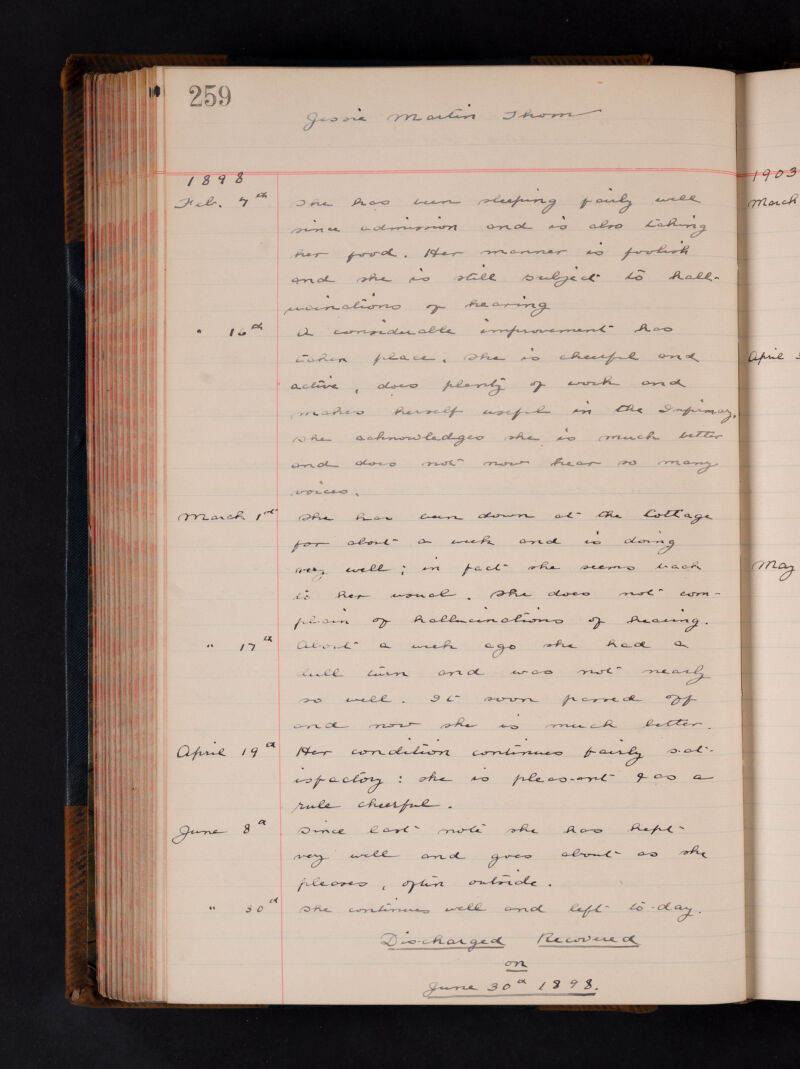 259
Jessie Martin Thom
1898
Feb. 7th She has been sleeping fairly well
since admission and is also taking
her food. Her manner is foolish
and she is still subject to hall-
ucinations of hearing
" 16th A considerable improvement has
taken place. She is cheerful and
active, does plenty of work and
makes herself useful in the Infirmary,
she acknowledges she is much better
and does not now hear so many
voices.
March 1st She has been down at the Cottage
for about a week and is doing
very well; in fact she seems back
to her usual. She does not com-
plain of hallucinations of hearing.
" 17th About a week ago she had a
turn and was not nearly
so well. It soon passed off
and now she is much better.
April 19th Her condition continues fairly sat-
isfactory: she is pleasant & as a
rule cheerful.
June 8th Since last note she has kept
very well and goes about as she
pleases, often outside.
" 30th She continues well and left to-day.
Discharged Recovered
on
June 30th 1898.
1903
March
April
May